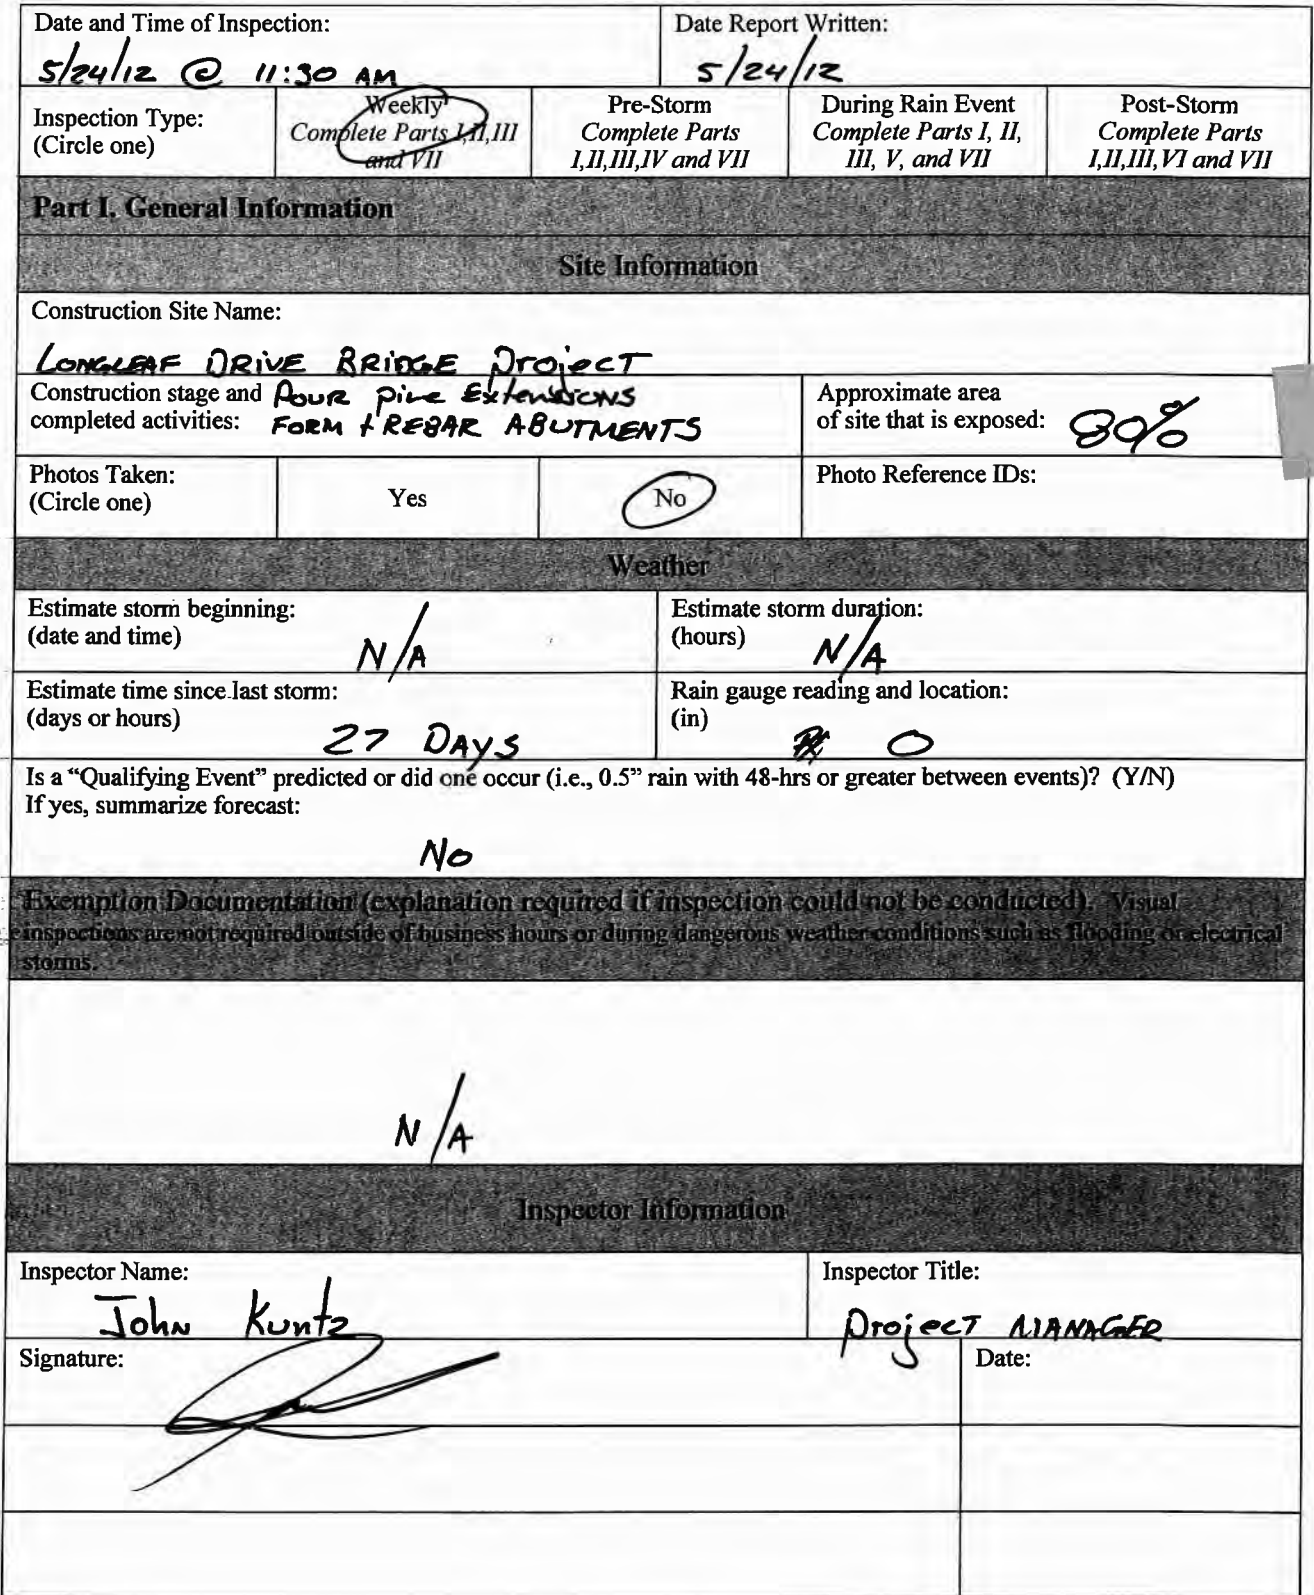 Date and Time of Inspection:
5/24/12 @ 11:30 AM
Date Report Written:
5/24/12
Inspection Type:
(Circle one)
Weekly
Complete Parts I,II,III
and VII
Pre-Storm
Complete Parts
I,II,III,IV and VII
During Rain Event
Complete Parts I, II,
III, V, and VII
Post-Storm
Complete Parts
I,II,III,VI and VII
Part I. General Information
Site Information
Construction Site Name:
LONGLEAF DRIVE BRIDGE Project
Construction stage and
completed activities:
Pour pile Extensions
FORM + REBAR ABUTMENTS
Approximate area
of site that is exposed:
80%
Photos Taken:
(Circle one)
Yes
No
Photo Reference IDs:
Weather
Estimate storm beginning:
(date and time)
N/A
Estimate storm duration:
(hours)
N/A
Estimate time since last storm:
(days or hours)
27 DAYS
Rain gauge reading and location:
(in)
0
Is a “Qualifying Event” predicted or did one occur (i.e., 0.5” rain with 48-hrs or greater between events)? (Y/N)
If yes, summarize forecast:
No
Exemption Documentation (explanation required if inspection could not be conducted). Visual
inspections are not required outside of business hours or during dangerous weather conditions such as flooding or electrical
storms.
N/A
Inspector Information
Inspector Name:
John Kuntz
Inspector Title:
Project MANAGER
Signature:
Date: